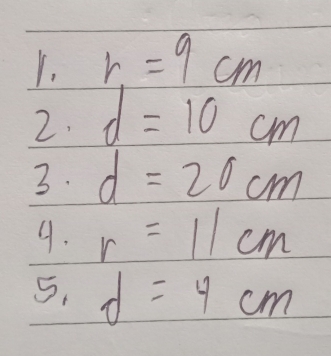 1. r = 9 cm
2. d = 10 cm
3. d = 20 cm
4. r = 11 cm
5. d = 4 cm